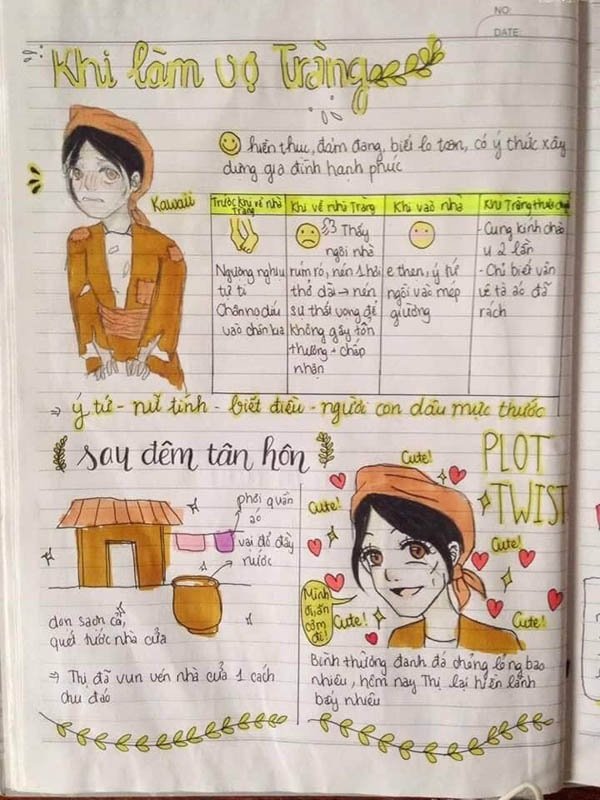 NO:
DATE:
Khi làm vợ Tràng
hiền thục, đảm đang, biết lo toan, có ý thức xây
dựng gia đình hạnh phúc
Kawaii
Trước khi về nhà
Tràng
Ngượng nghịu
tự ti
Chân nọ díu
vào chân kia
Khi về nhà Tràng
Thấy
ngôi nhà
rúm ró, nén 1 hơi
thở dài → nén
sự thất vọng để
không gây tổn
thương + chấp
nhận
Khi vào nhà
e thẹn, ý tứ
ngồi vào mép
giường
Khi Tràng thưa
- Cung kính chào
u 2 lần
- Chỉ biết vân
vê tà áo đã
rách
⇒ ý tứ - nữ tính - biết điều - người con dâu mực thước
say đêm tân hôn
phơi quần
áo
vại đổ đầy
nước
dọn sạch cỏ,
quét tước nhà cửa
⇒ Thị đã vun vén nhà cửa 1 cách
chu đáo
PLOT
TWIST
Cute!
Cute!
Cute!
Cute!
Cute!
Mình
ơi, ăn
cơm
đi!
Bình thường đanh đá chỏng lỏng bao
nhiêu, hôm nay Thị lại hiền lành
bấy nhiêu